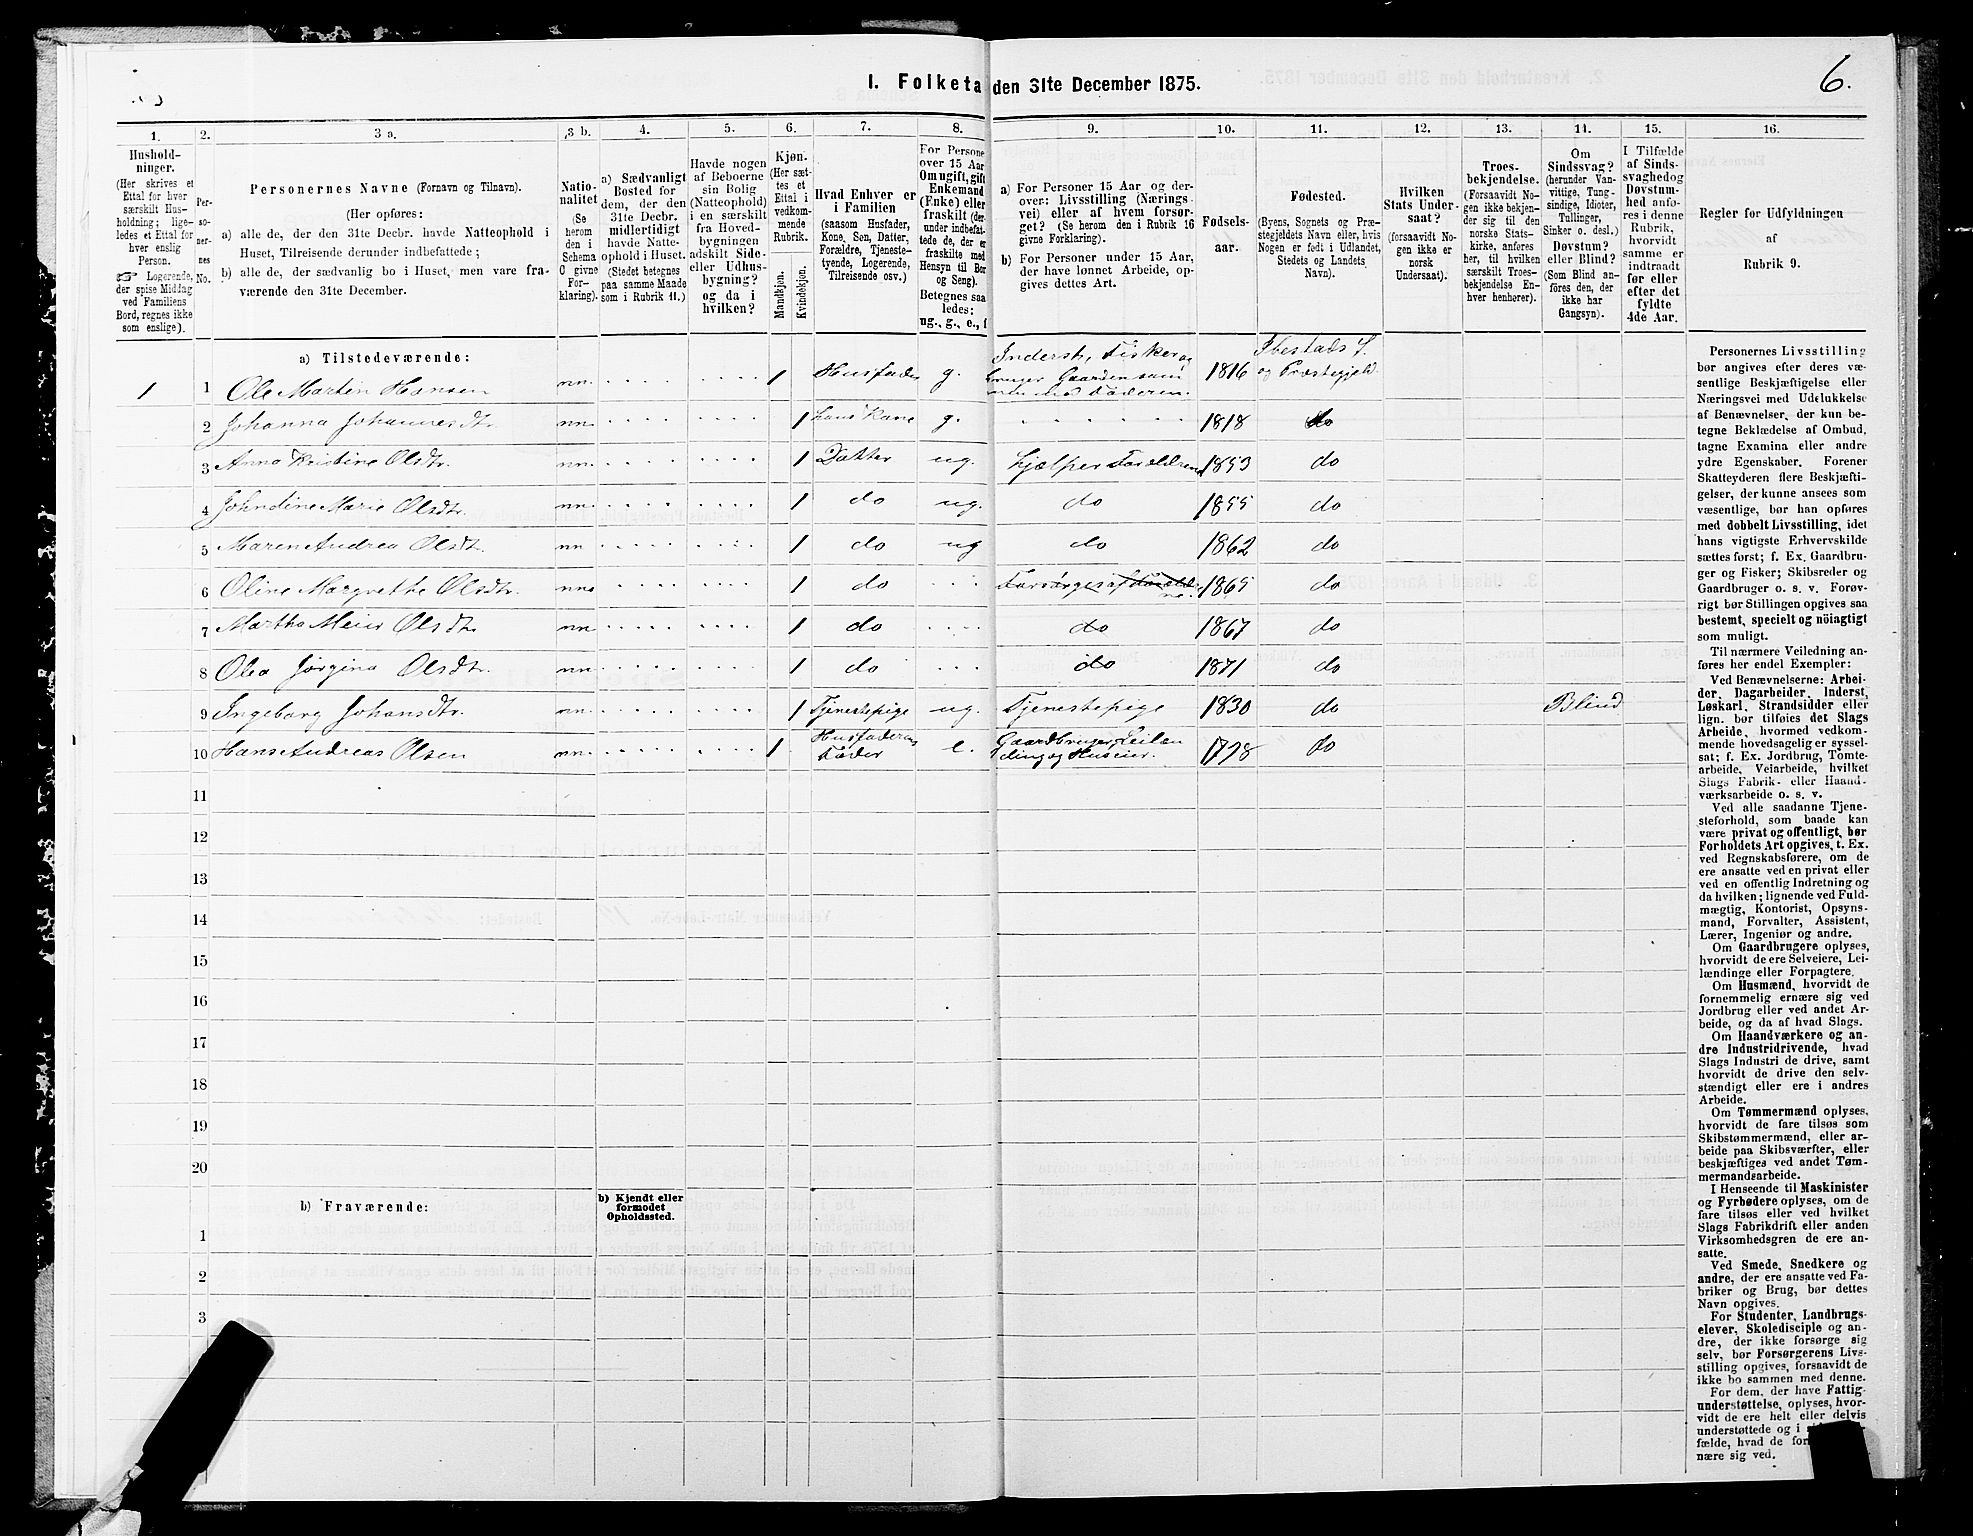 I. Folketa den 31te December 1875.
6.
1.
2.
3 a.
3 b.
4.
5.
6.
7.
8.
9.
10.
11.
12.
13.
14.
15.
16.
Hushold-
ninger.
(Her skrives et
Ettal for hver
særskilt Hus-
holdning; lige-
ledes et Ettal for
hver enslig
Person.
Logerende,
der spise Middag
ved Familiens
Bord, regnes ikke
som enslige).
Per-
so-
ner-
nes
No.
Personernes Navne (Fornavn og Tilnavn).
(Her opføres:
a) alle de, der den 31te Decbr. havde Natteophold i
Huset, Tilreisende derunder indbefattede;
b) alle de, der sædvanlig bo i Huset, men vare fra-
værende den 31te December.
Natio-
nalitet
(Se
herom
den i
Schema
0 givne
For-
klaring).
a) Sædvanligt
Bosted for
dem, der den
31te Decbr.
midlertidigt
havde Natte-
ophold i Huset.
(Stedet betegnes
paa samme Maade
som i Rubrik 11.)
Havde nogen
af Beboerne
sin Bolig
(Natteophold)
i en særskilt
fra Hoved-
bygningen
adskilt Side-
eller Udhus-
bygning?
og da i
hvilken?
Kjøn.
(Her sæt-
tes et
Ettal i
vedkom-
mende
Rubrik.
Mandkjøn.
Kvindekjøn.
Hvad Enhver er
i Familien
(saasom Husfader,
Kone, Søn, Datter,
Forældre, Tjeneste-
tyende, Logerende,
Tilreisende osv.)
For Persone
over 15 Aar
Om ugift, gift
Enkemand
(Enke) eller
fraskilt (der
under indbefat-
tede de, der er
fraskilte med
Hensyn til Bor
og Seng).
Betegnes saa
ledes:
ug., g., e., f
a) For Personer 15 Aar og der-
over: Livsstilling (Nærings-
vei) eller af hvem forsør-
get? (Se herom den i Rubrik 16
givne Forklaring).
b) For Personer under 15 Aar,
der have lønnet Arbeide, op-
gives dettes Art.
Fødsels-
aar.
Fødested.
(Byens, Sognets og Præ-
stegjeldets Navn eller, hvis
Nogen er født i Udlandet,
Stedets og Landets
Navn).
Hvilken
Stats Under-
saat?
(forsaavidt No-
gen ikke er
norsk
Undersaat).
Troes-
bekjendelse.
(Forsaavidt No-
gen ikke bekjen-
der sig til den
norske Stats-
kirke, anføres
her, til hvilken
særskilt Troes-
bekjendelse En-
hver henhører).
Om
Sindssvag?
(herunder Van-
vittige, Tung-
sindige, Idioter,
Tullinger,
Sinker o. desl.)
Døvstum?
eller Blind?
(Som Blind an-
føres den, der
ikke har
Gangsyn).
I Tilfælde
af Sinds-
svaghed og
Døvstum-
hed anfø-
res i denne
Rubrik,
hvorvidt
samme er
indtraadt
før eller
efter det
fyldte
4de Aar.
Regler for Udfyldningen
af
Rubrik 9.
a) Tilstedeværende:
1 1 Ole Martin Hansen nn. 1 Husfader g. Inderst, Fisker og bruger Gaarden sammen med Faderen. 1816 Ibestads S. og Præstegjeld
2 Johanna Johannesdtr. nn. 1 hans Kone g. 1818 do
3 Anna Kristine Olsdtr. nn. 1 Datter ug. hjælper Forældrene 1853 do
4 Johndine Marie Olsdtr. nn. 1 do ug. do 1855 do
5 Maren Andrea Olsdtr. nn 1 do ug do 1862 do
6 Oline Margrethe Olsdtr. nn. 1 do Forsørges af Forældrene. 1865 do
7 Martha Meier Olsdtr. nn. 1 do do 1867 do
8 Olea Jørgina Olsdtr. nn. 1 do do 1871 do
9 Ingeborg Johansdtr. nn. 1 Tjenestepige ug. Tjenestepige 1830 do Blind
10 Hans Andreas Olsen nn. 1 Husfaderens Fader e. Gaardbruger, Leilænding og Huseier. 1798 do
11
12
13
14
15
16
17
18
19
20
b) Fraværende:
b) Kjendt eller
formodet
Opholdssted.
1
2
3
Personernes Livsstilling
bør angives efter deres væ-
sentlige Beskjæftigelse eller
Næringsvei med Udelukkelse
af Benævnelser, der kun be-
tegne Beklædelse af Ombud,
tagne Examina eller andre
ydre Egenskaber. Forener
Skatteyderen flere Beskjæfti-
gelser, der kunne ansees som
væsentlige, bør han opføres
med dobbelt Livsstilling, idet
hans vigtigste Erhvervskilde
sættes først; f. Ex. Gaardbru-
ger og Fisker; Skibsreder og
Gaardbruger o. s. v. Forøv-
rigt bør Stillingen opgives saa
bestemt, specielt og nöiagtigt
som muligt.
Til nærmere Veiledning an-
føres her endel Exempler:
Ved Benævnelserne: Arbei-
der, Dagarbeider, Inderst,
Løskarl, Strandsidder eller
lign. bør tilføies det Slags
Arbeide, hvormed vedkom-
mende hovedsagelig er syssel-
sat; f. Ex. Jordbrug, Tomte-
arbeide, Veiarbeide, hvilket
Slags Fabrik- eller Haand-
værksarbeide o. s. v.
Ved alle saadanne Tjene-
steforhold, som baade kan
være privat og offentligt, bør
Forholdets Art opgives, t. Ex.
ved Regnskabsførere, om de
ere ansatte ved en privat eller
ved en offentlig Indretning og
da hvilken; lignende ved Fuld-
mægtig, Kontorist, Opsyns-
mand, Forvalter, Assistent,
Lærer, Ingeniør og andre.
Om Gaardbrugere oplyses,
hvorvidt de ere Selveiere, Lei-
lændinge eller Forpagtere.
Om Husmænd, hvorvidt de
fornemmelig ernære sig ved
Jordbrug eller ved andet Ar-
beide, og da af hvad Slags.
Om Haandværkere og an-
dre Industridrivende, hvad
Slags Industri de drive, samt
hvorvidt de drive den selv-
stændigt eller ere i andres
Arbeide.
Om Tømmermænd oplyses,
hvorvidt de fare tilsøs som
Skibstømmermænd, eller ar-
beide paa Skibsværfter, eller
beskjæftiges ved andet Tøm-
mermandsarbeide.
I Henseende til Maskinister
og Fyrbødere oplyses, om de
fare tilsøs eller ved hvilket
Slags Fabrikdrift eller anden
Virksomhedsgren de ere an-
satte.
Ved Smede, Snedkere og
andre, der ere ansatte ved Fa-
briker og Brug, bør dettes
Navn opgives.
For Studenter, Landbrugs-
elever, Skoledisciple og an-
dre, der ikke forsørge sig
selv, bør Forsørgerens Livs-
stilling opgives, forsaavidt de
ikke bo sammen med denne.
For dem, der have Fattig-
understøttelse, oplyses, hvor-
vidt de ere helt eller delvis
understøttede og i
fælde, hvad de for
nære sig ved.